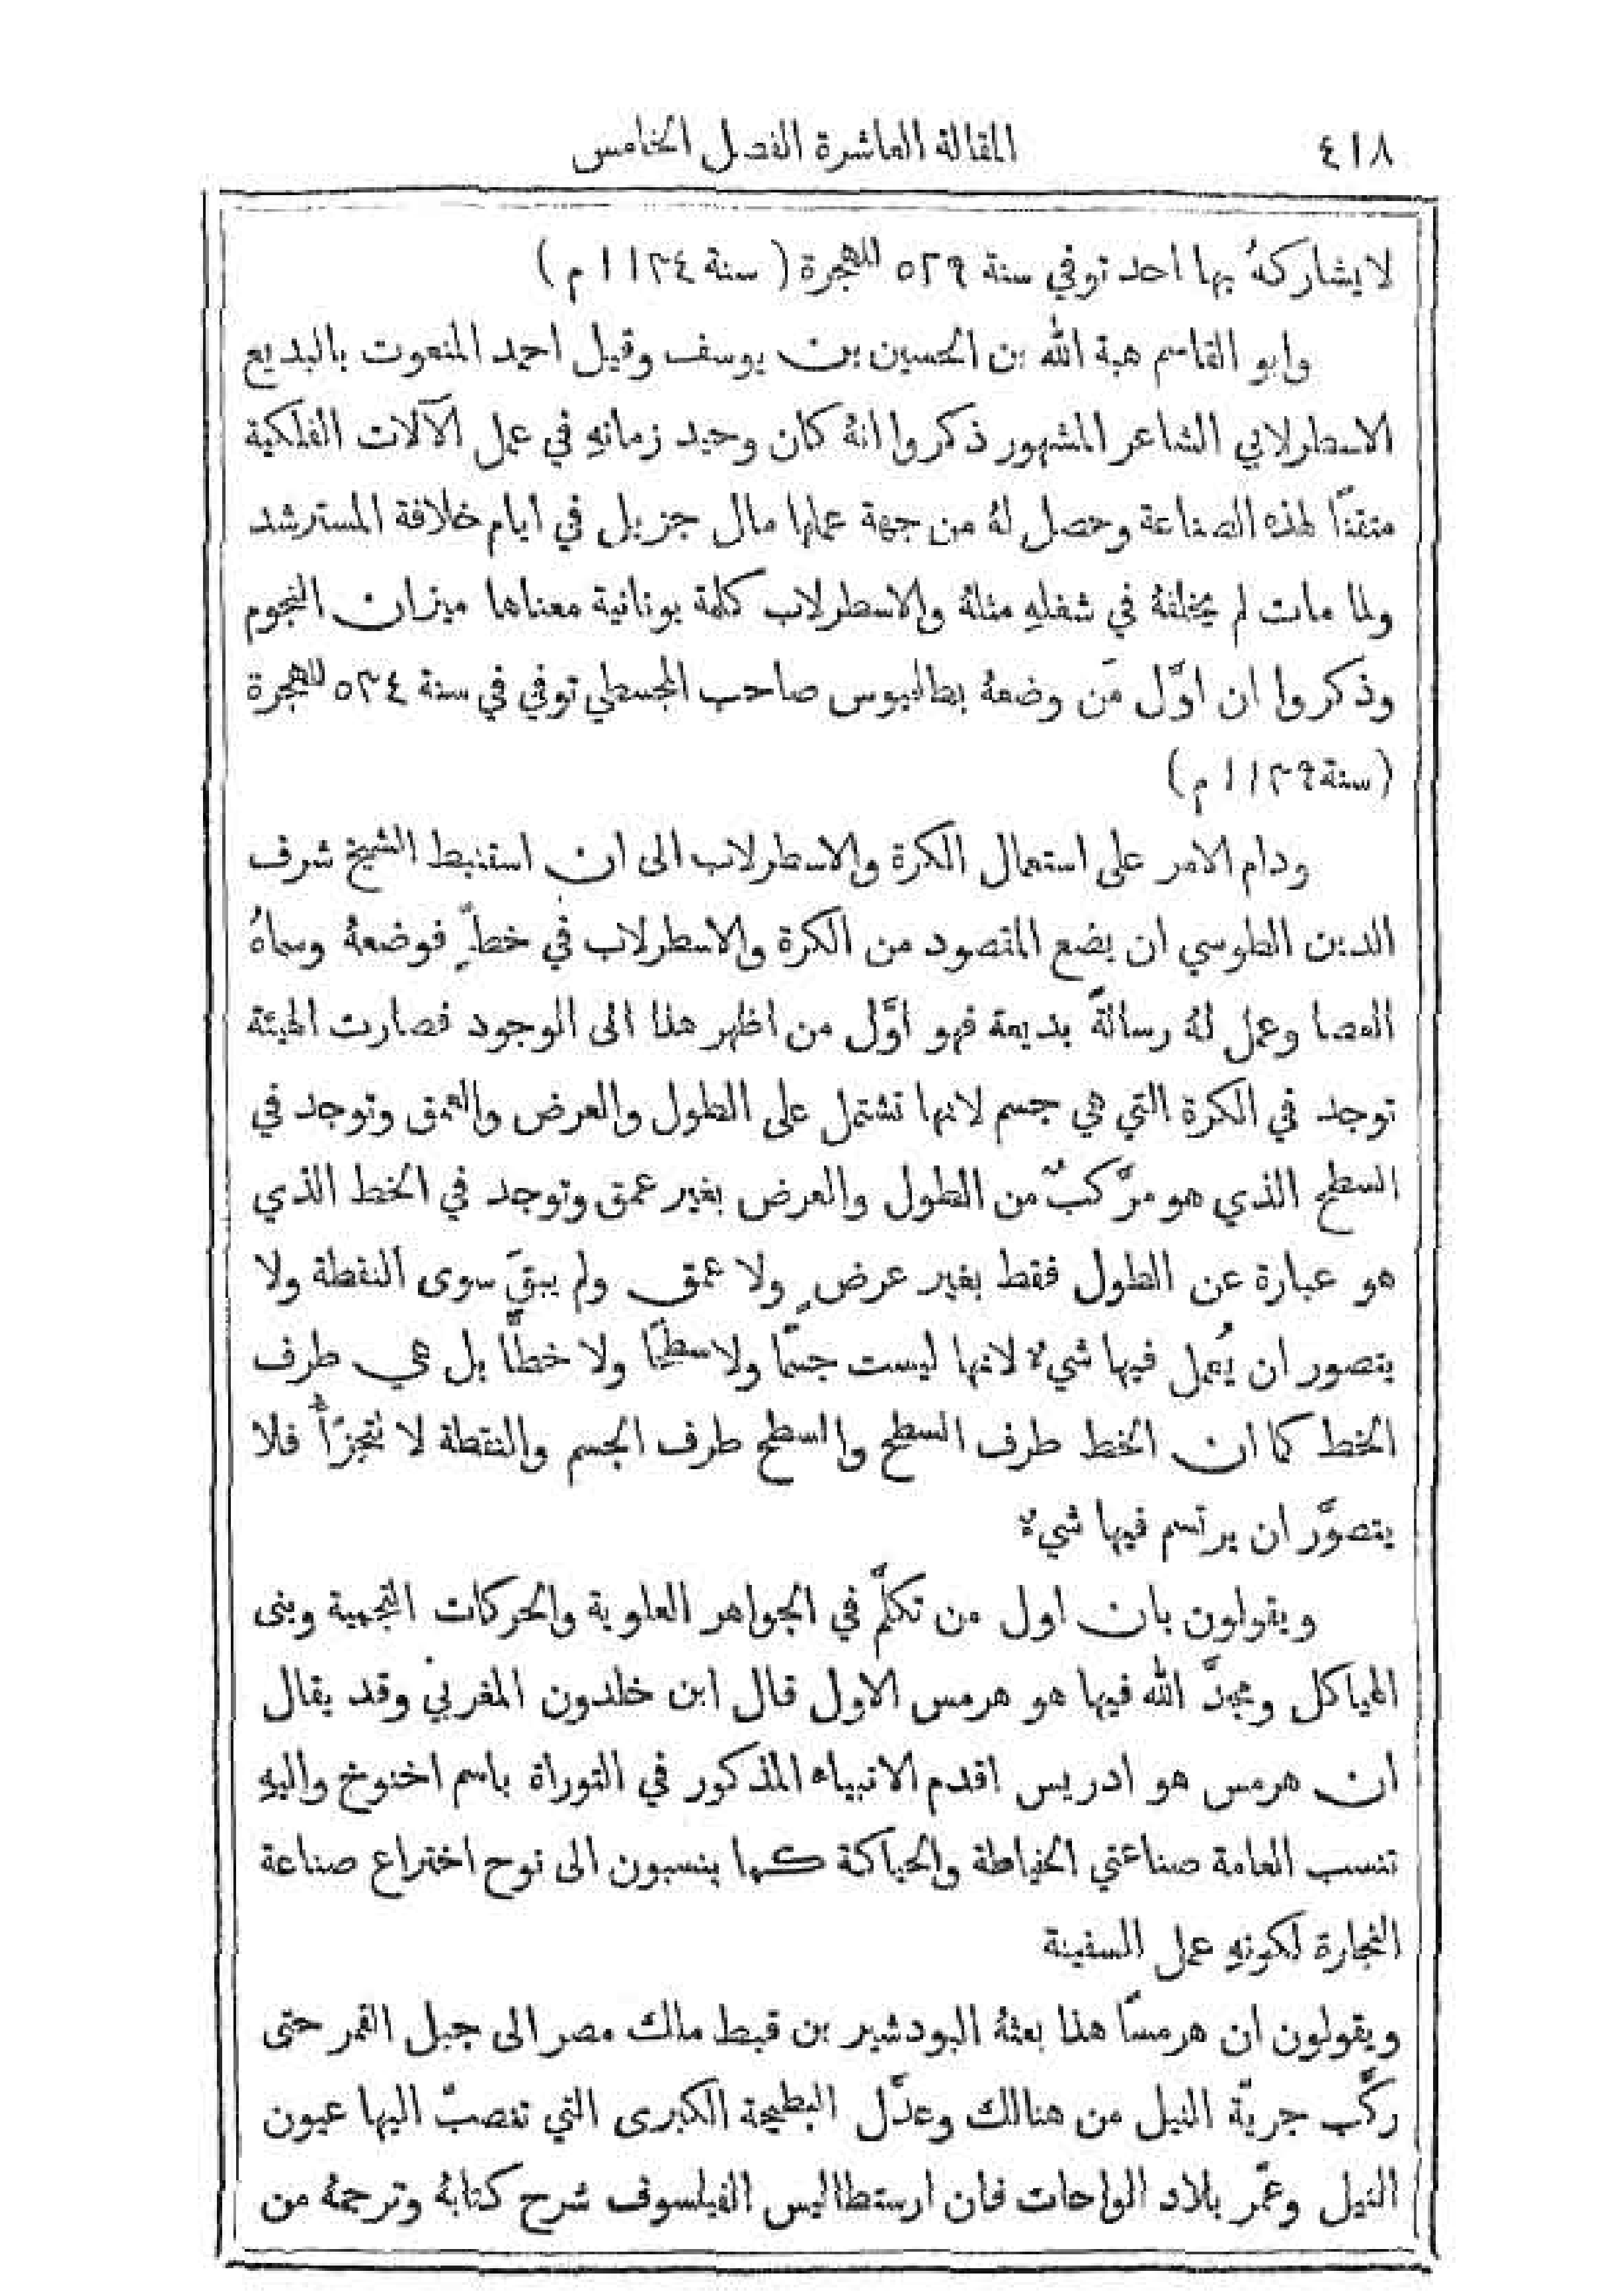 ٤١٨
المقالة العاشرة الفصل الخامس
لا يشاركهُ بها احد توفي سنة ٥٢٩ للهجرة (سنة ١١٣٤ م)
وابو القاسم هبة الله بن الحسين بن يوسف وقيل احمد المنعوت بالبديع
الاسطرلابي الشاعر المشهور ذكروا انهُ كان وحيد زمانهِ في عمل الآلات الفلكية
متقناً لهذه الصناعة وحصل لهُ من جهة عملها مال جزيل في ايام خلافة المسترشد
ولما مات لم يخلفهُ في شغلهِ مثلهُ والاسطرلاب كلمة يونانية معناها ميزان النجوم
وذكروا ان اوَّل مَن وضعهُ بطاليوس صاحب المجسطي توفي في سنة ٥٣٤ للهجرة
(سنة ١١٣٩ م)
ودام الامر على استعمال الكرة والاسطرلاب الى ان استنبط الشيخ شرف
الدين الطوسي ان يضع المقصود من الكرة والاسطرلاب في خطٍّ فوضعهُ وسماهُ
العصا وعمل لهُ رسالةً بديعة فهو اوَّل من اظهر هذا الى الوجود فصارت الهيئة
توجد في الكرة التي هي جسم لانها تشتمل على الطول والعرض والعمق وتوجد في
السطح الذي هو مركَّبٌ من الطول والعرض بغير عمق وتوجد في الخط الذي
هو عبارة عن الطول فقط بغير عرضٍ ولا عمق ولم يبقَ سوى النقطة ولا
يتصور ان يُعمل فيها شيءٌ لانها ليست جسماً ولا سطحاً ولا خطًّا بل هي طرف
الخط كما ان الخط طرف السطح والسطح طرف الجسم والنقطة لا تتجزّأ فلا
يتصوَّر ان يرتسم فيها شيءٌ
ويقولون بان اول من تكلَّم في الجواهر العلوية والحركات النجمية وبنى
الهياكل ومجدَّ الله فيها هو هرمس الاول قال ابن خلدون المغربي وقد يقال
ان هرمس هو ادريس اقدم الانبياء المذكور في التوراة باسم اخنوخ واليهِ
تنسب العامة صناعتي الخياطة والحياكة كما ينسبون الى نوح اختراع صناعة
النجارة لكونهِ عمل السفينة
ويقولون ان هرمساً هذا بعثهُ البودشير بن قبط مالك مصر الى جبل القمر حتى
ركَّب جريّة النيل من هنالك وعدَّل البطيحة الكبرى التي تنصبّ اليها عيون
النيل وعمّر بلاد الواحات فان ارستطاليس الفيلسوف شرح كتابهُ وترجمهُ من